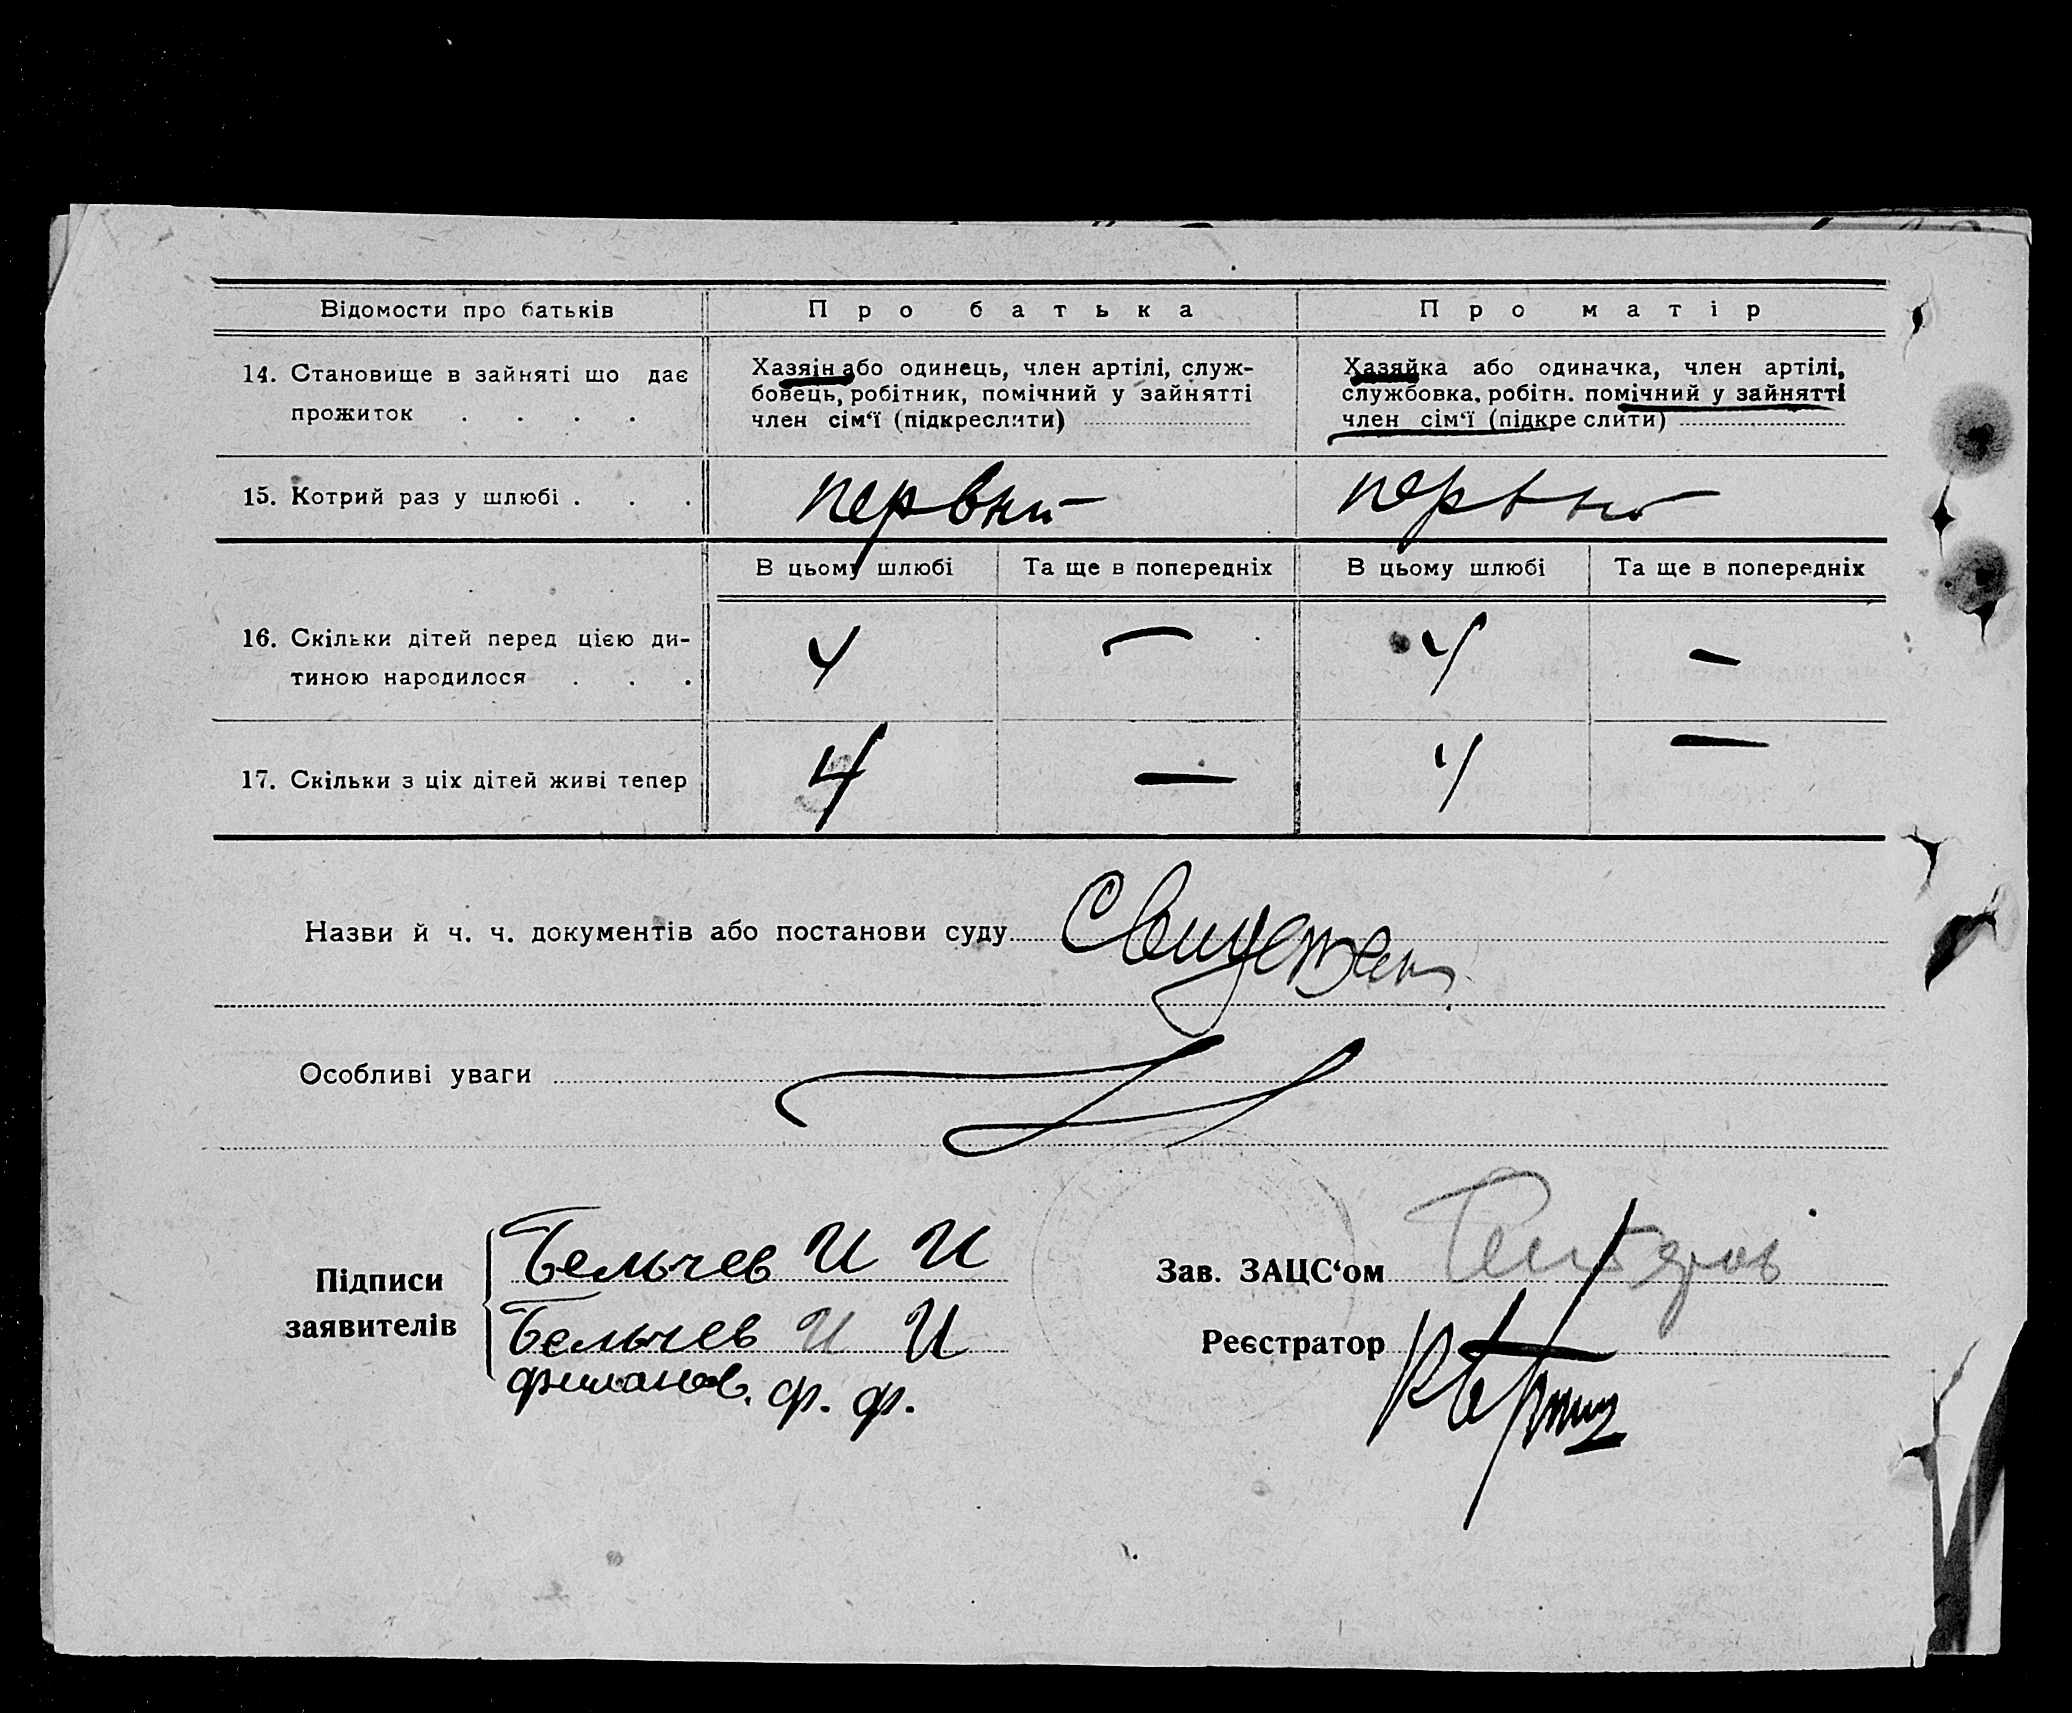 Відомости про батьків
Про батька
Про матір
14. Становище в зайняті що дає
прожиток . . . .
Хазяін або одинець, член артілі, служ-
бовець, робітник, помічний у зайнятті
член сім'ї (підкреслити)
Хазяйка або одиначка, член артілі,
службовка, робітн. помічний у зайнятті
член сім'ї (підкреслити)
15. Котрий раз у шлюбі . . .
первый
первый
В цьому шлюбі
Та ще в попередніх
В цьому шлюбі
Та ще в попередніх
16. Скільки дітей перед цією ди-
тиною народилося . . .
4
—
4
—
17. Скільки з ціх дітей живі тепер
4
—
4
—
Назви й ч. ч. документів або постанови суду
Особливі уваги
Підписи
заявителів
Бельчев И И
Бельчев И И
филанов. ф. ф.
Зав. ЗАЦС‘ом
Реєстратор